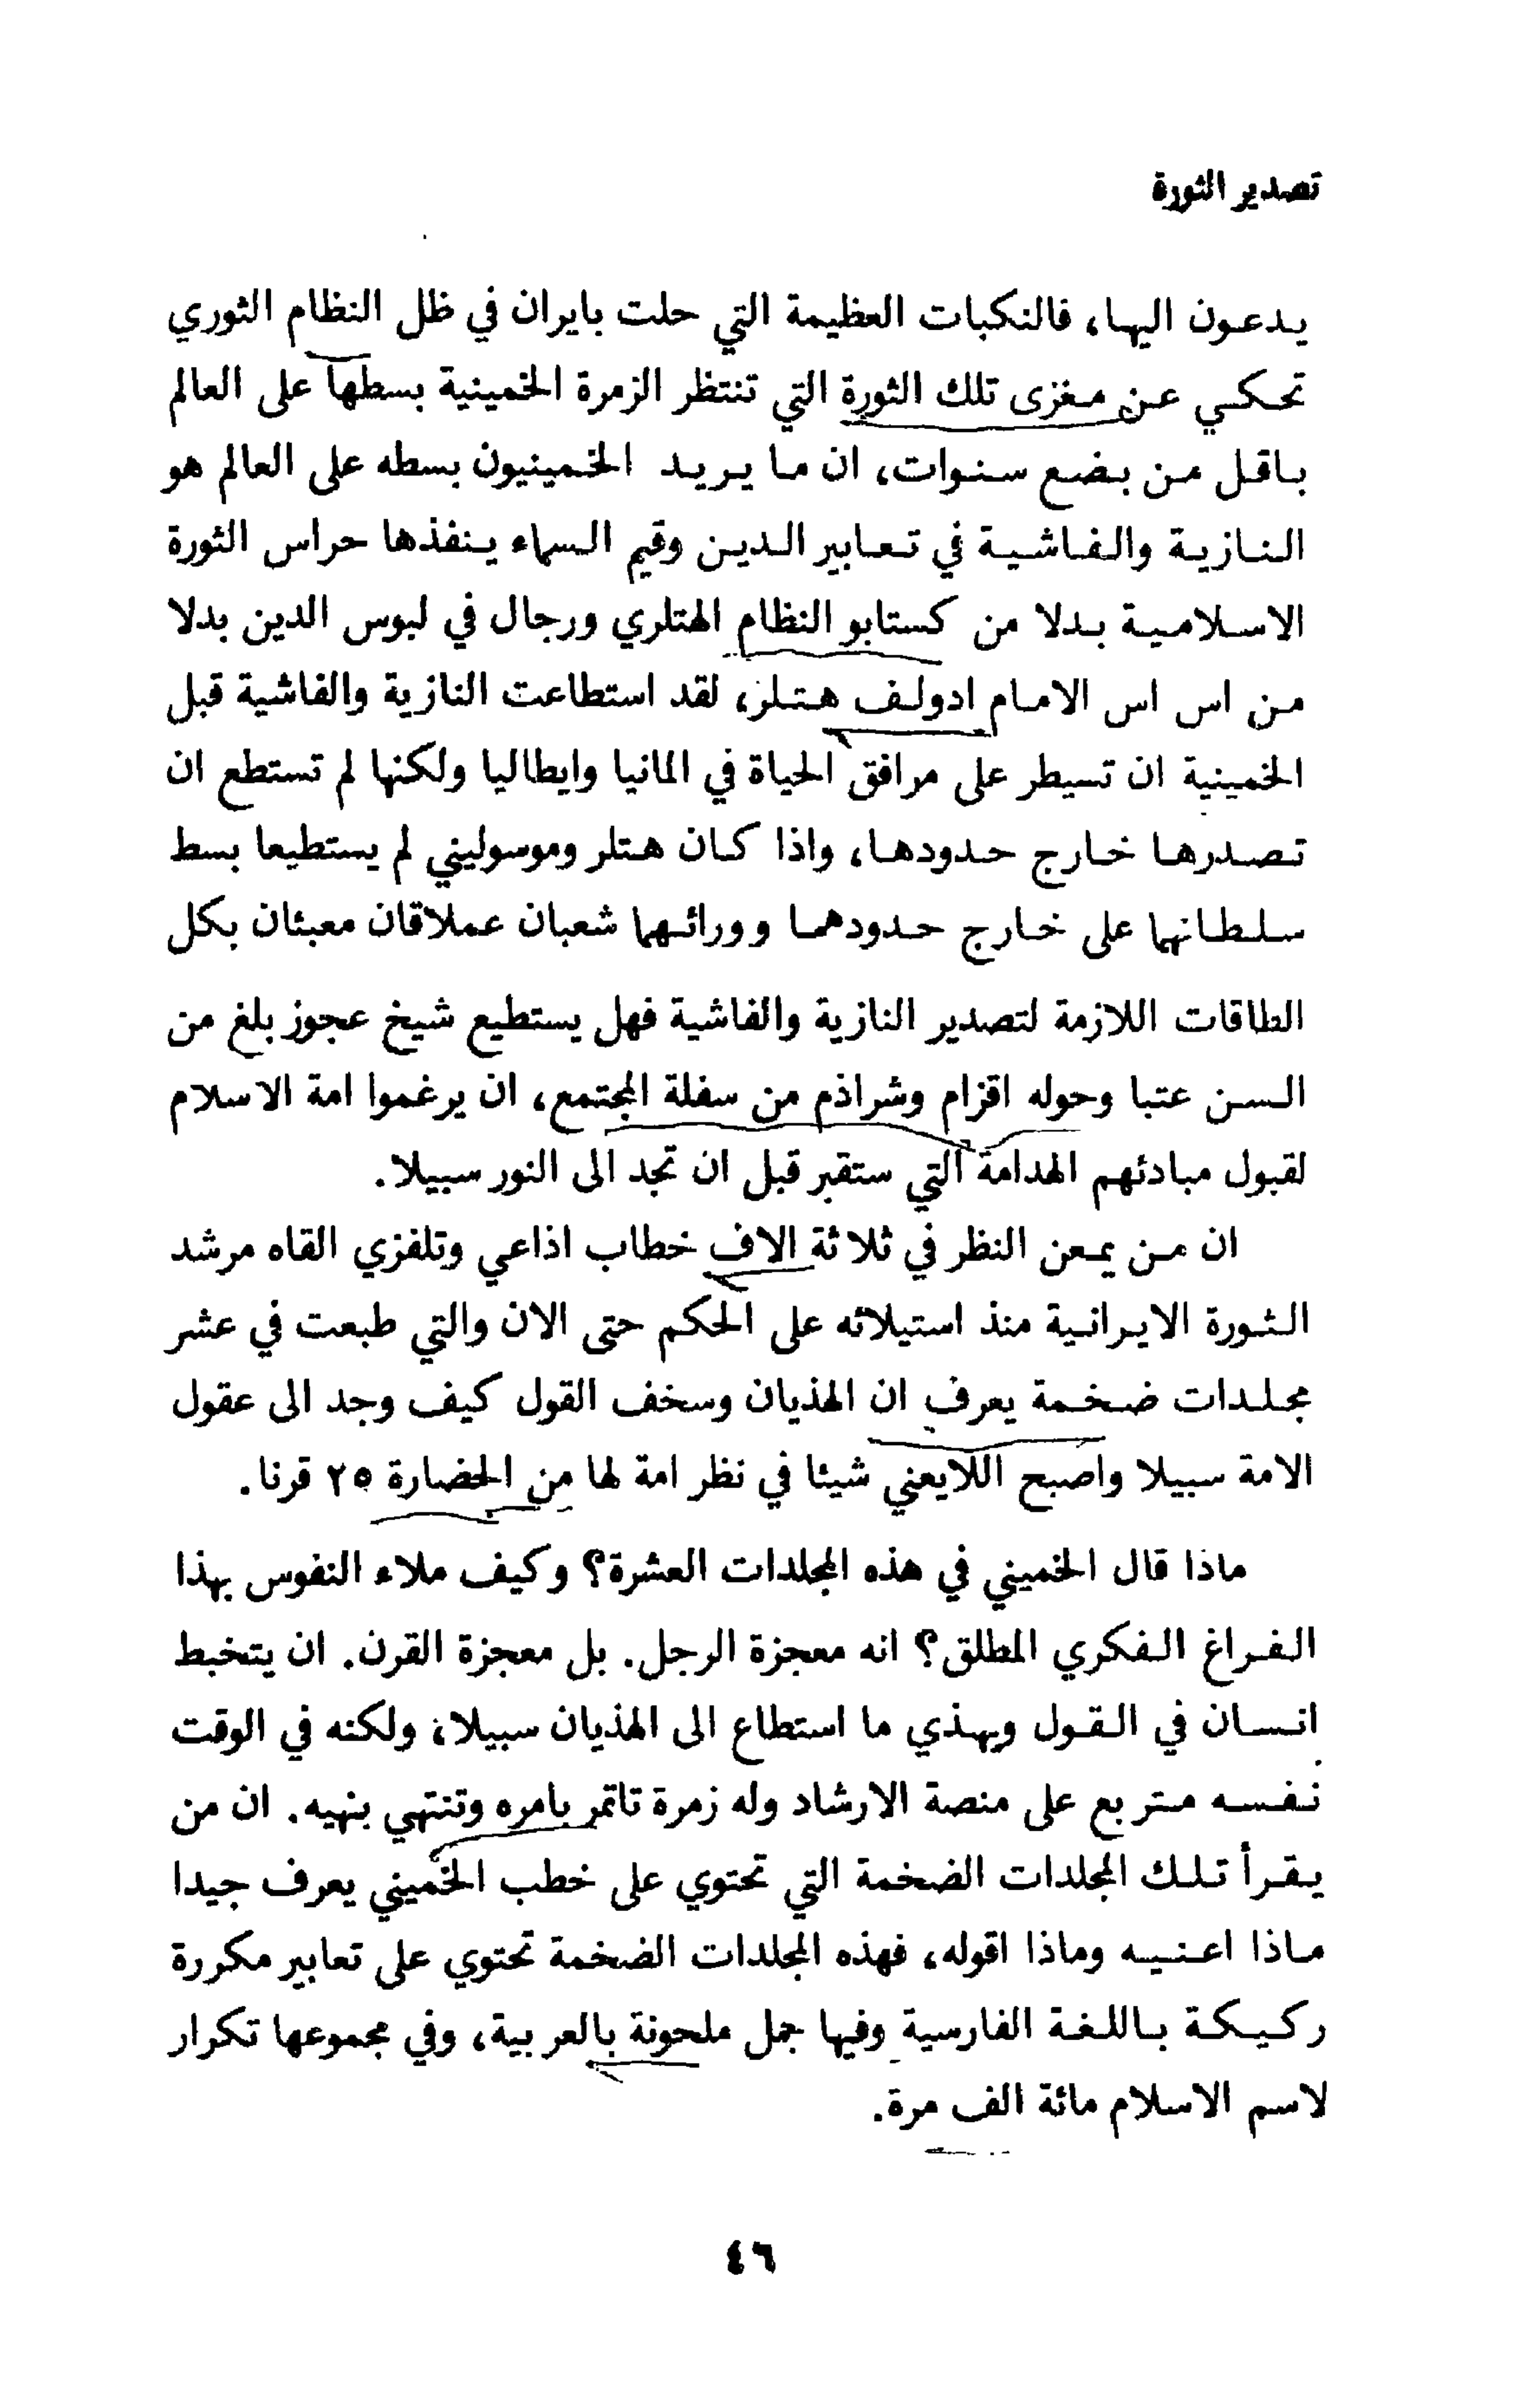 تصدير الثورة
يدعون اليها، فالنكبات العظيمة التي حلت بايران في ظل النظام الثوري
تحكي عن مغزى تلك الثورة التي تنتظر الزمرة الخمينية بسطها على العالم
باقل من بضع سنوات، ان ما يريد الخمينيون بسطه على العالم هو
النازية والفاشية في تعابير الدين وقيم السماء ينفذها حراس الثورة
الاسلامية بدلا من كستابو النظام الهتلري ورجال في لبوس الدين بدلا
من اس اس الامام ادولف هتلر، لقد استطاعت النازية والفاشية قبل
الخمينية ان تسيطر على مرافق الحياة في المانيا وايطاليا ولكنها لم تستطع ان
تصدرها خارج حدودها، واذا كان هتلر وموسوليني لم يستطيعا بسط
سلطانهما على خارج حدودهما وورائهما شعبان عملاقان معبئان بكل
الطاقات اللازمة لتصدير النازية والفاشية فهل يستطيع شيخ عجوز بلغ من
السن عتبا وحوله اقزام وشراذم من سفلة المجتمع، ان يرغموا امة الاسلام
لقبول مبادئهم الهدامة التي ستقبر قبل ان تجد الى النور سبيلا.
ان من يمعن النظر في ثلاثة الاف خطاب اذاعي وتلفزي القاه مرشد
الثورة الايرانية منذ استيلائه على الحكم حتى الان والتي طبعت في عشر
مجلدات ضخمة يعرف ان الهذيان وسخف القول كيف وجد الى عقول
الامة سبيلا واصبح اللايعني شيئا في نظر امة لها من الحضارة ٢٥ قرنا.
ماذا قال الخميني في هذه المجلدات العشرة؟ وكيف ملاء النفوس بهذا
الفراغ الفكري المطلق؟ انه معجزة الرجل. بل معجزة القرن. ان يتخبط
انسان في القول ويهذي ما استطاع الى الهذيان سبيلا، ولكنه في الوقت
نفسه متربع على منصة الارشاد وله زمرة تاتمر بامره وتنتهي بنهيه. ان من
يقرأ تلك المجلدات الضخمة التي تحتوي على خطب الخميني يعرف جيدا
ماذا اعنيه وماذا اقوله، فهذه المجلدات الضخمة تحتوي على تعابير مكررة
ركيكة باللغة الفارسية وفيها جمل ملحونة بالعربية، وفي مجموعها تكرار
لاسم الاسلام مائة الف مرة.
٤٦